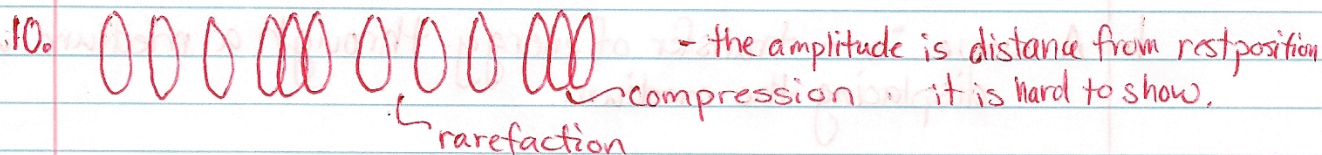 10. - the amplitude is distance from rest position
compression it is hard to show.
rarefaction